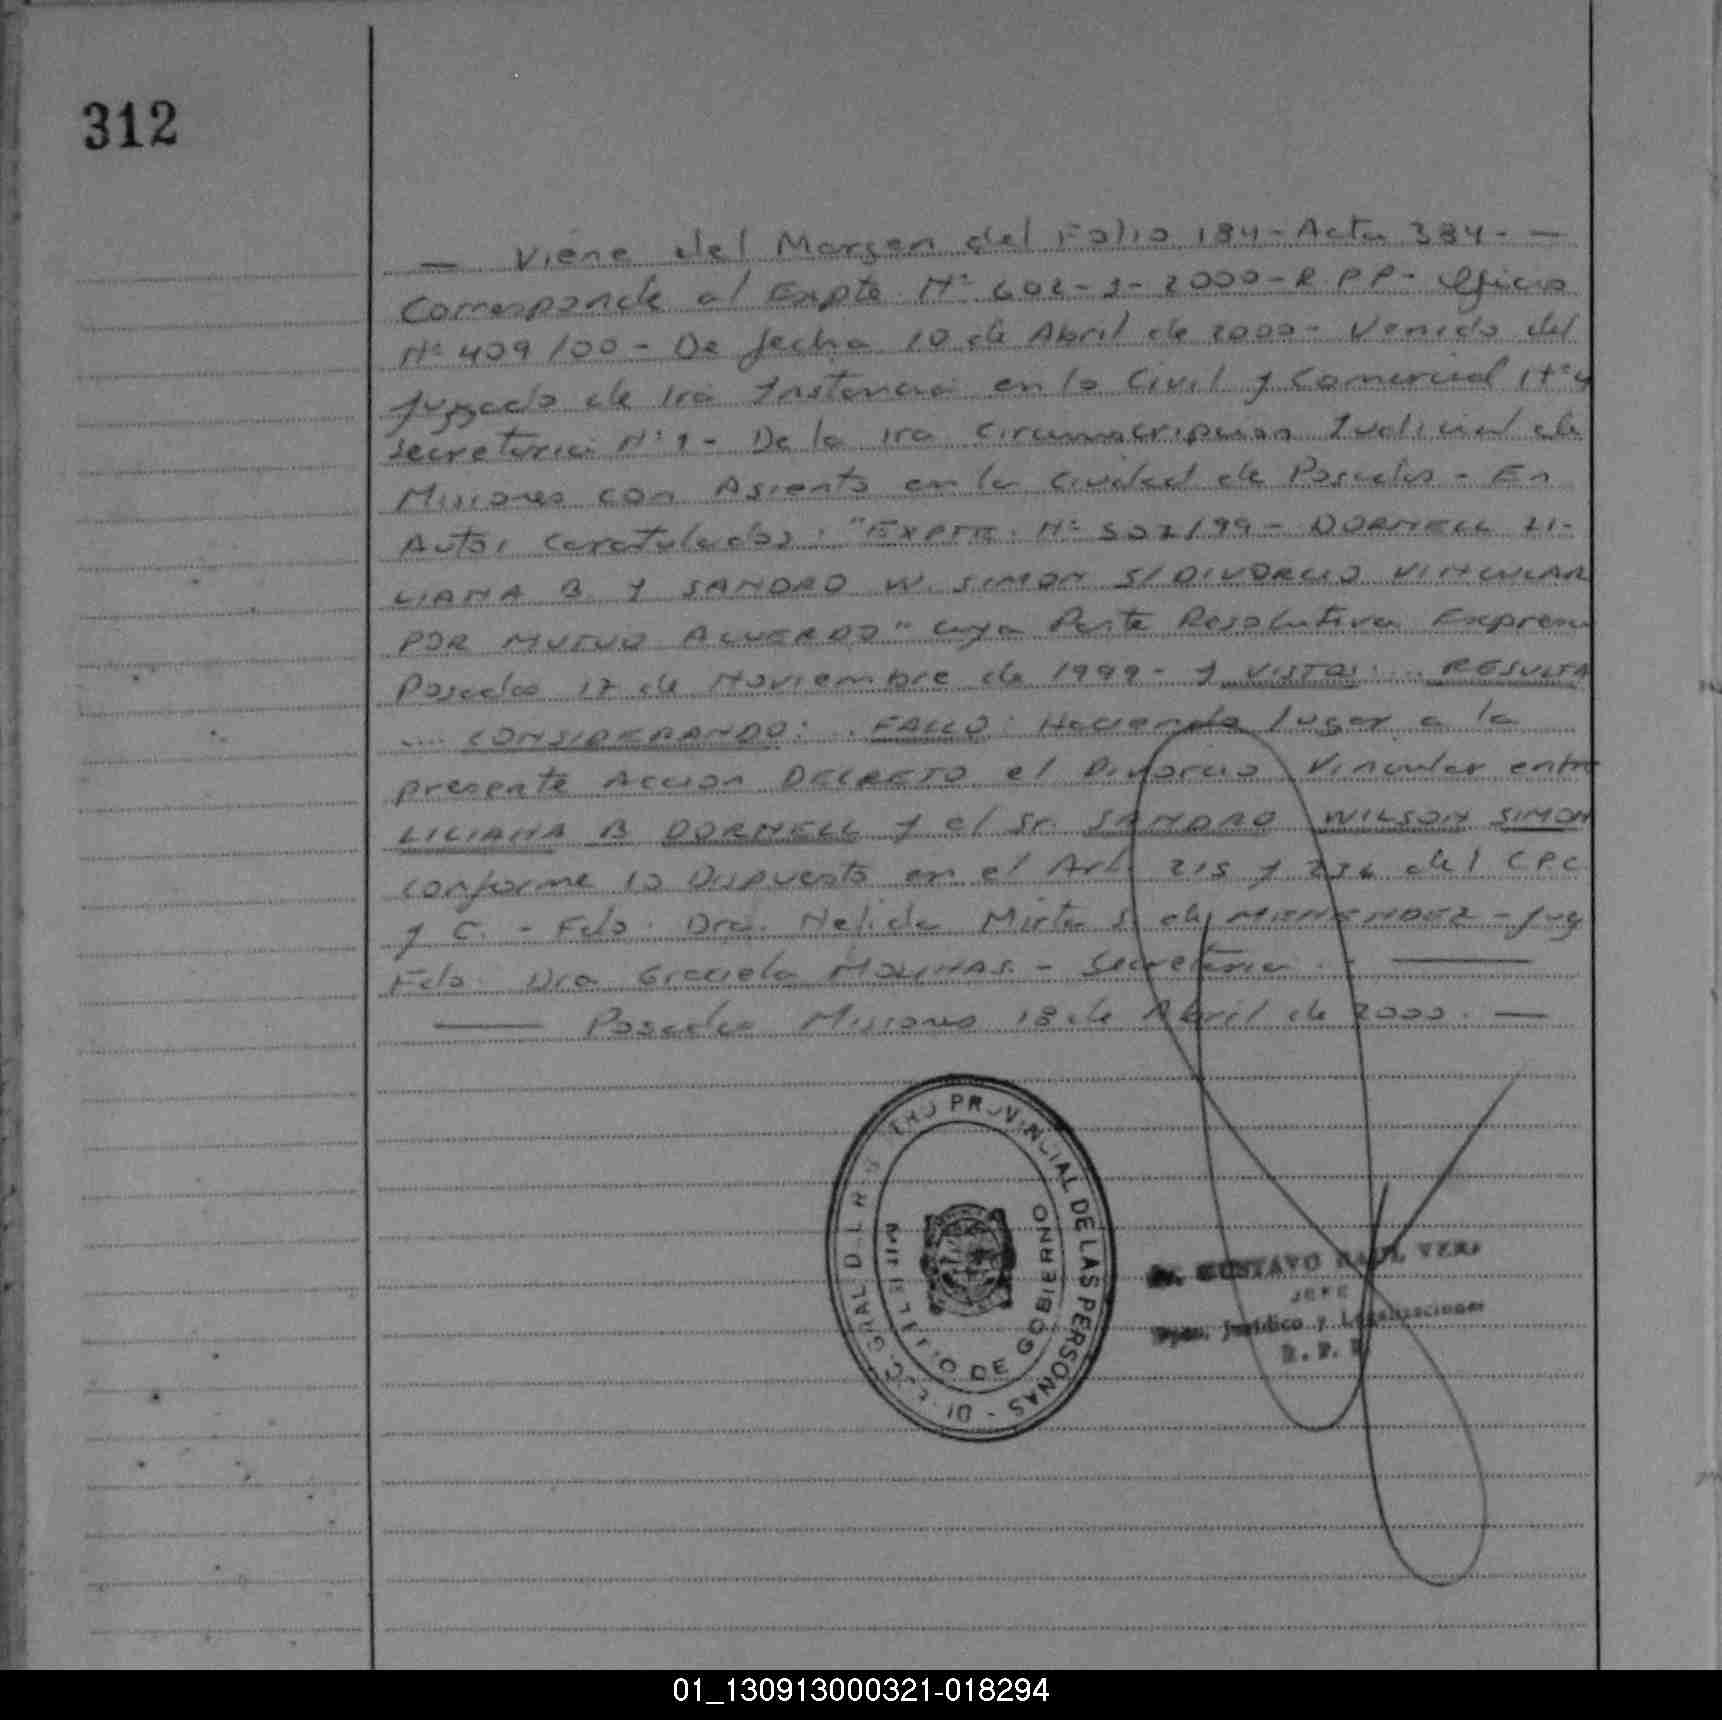 312
— Viene del Margen del Folio 184 - Acta 384 - —
Corresponde al Expte. Nº 602-S-2000 - R.P.P - Oficio
Nº 409/00 - De fecha 10 de Abril de 2000 - Venido del
Juzgado de 1ra Instancia en lo Civil y Comercial Nº 4
Secretaria Nº 1 - De la 1ra Circunscripcion Judicial de
Misiones con Asiento en la Ciudad de Posadas - En
Autos Caratulados: "EXPTE. Nº 502/99 - DORNELL LI-
LIANA B. Y SANDRO W. SIMON S/DIVORCIO VINCULAR
POR MUTUO ACUERDO" cuya Parte Resolutiva Expresa
Posadas 17 de Noviembre de 1999 - Y VISTOS: ... RESULTA
.... CONSIDERANDO: .. FALLO: Haciendo lugar a la
presente Accion DECRETO el Divorcio Vincular entre
LILIANA B DORNELL y el Sr. SANDRO WILSON SIMON
conforme lo Dispuesto en el Art. 215 y 236 del C.P.C
y C. - Fdo. Dra. Nelida Mirta S. de MENENDEZ - Juez
Fdo. Dra Graciela MOLINAS. - Secretaria. - ———
——— Posadas Misiones 18 de Abril de 2000. —
PROVINCIAL DE LAS PERSONAS -
DE GOBIERNO
Dr. GUSTAVO RAUL VERA
JEFE
Dpto. Jurídico y Legalizaciones
R. P. P
01_130913000321-018294